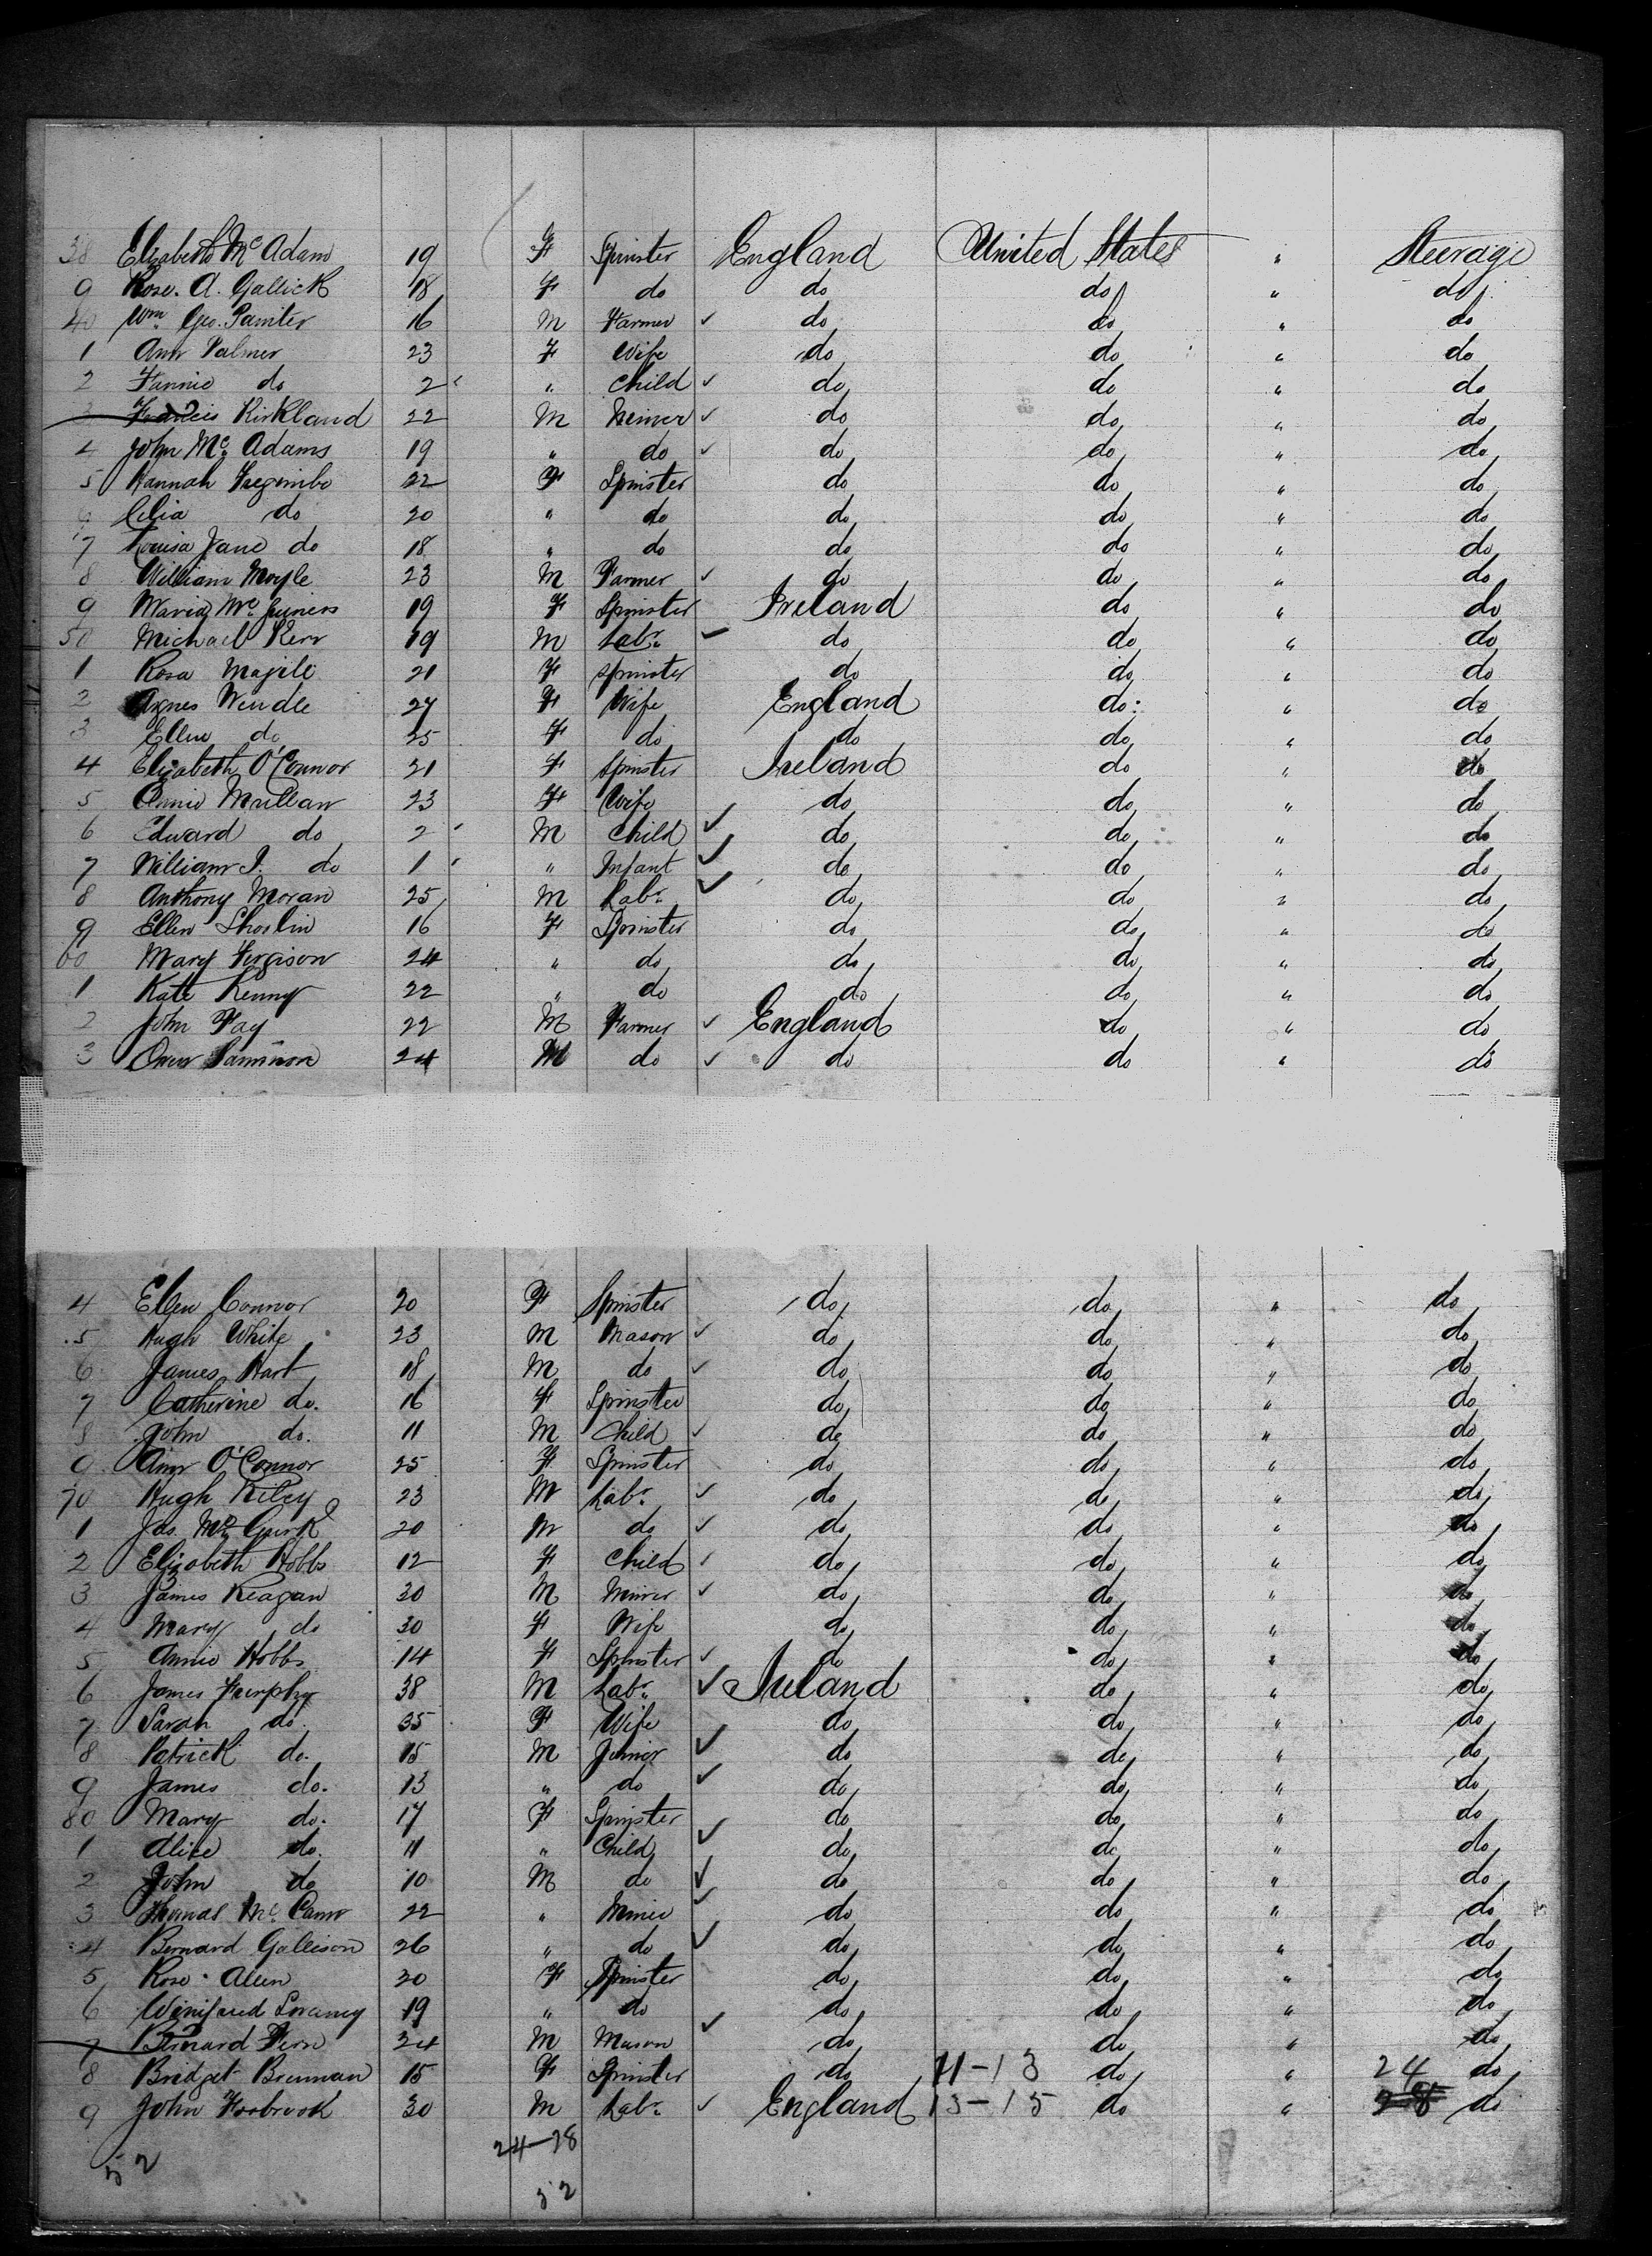 38 Elizabeth Mc Adam 19 F Spinster England United States " Steerage
9 Rose. A. Gallick 18 F do do do " do
40 Wm Geo. Painter 16 M Farmer ✓ do do " do
1 Ann Palmer 23 F Wife do do " do
2 Fannie do 2 " Child ✓ do do " do
3 Francis Kirkland 22 M ✓ do do " do
4 John Mc Adams 19 " do ✓ do do " do
5 Hannah 22 F Spinster do do " do
6 Celia do 20 " do do do " do
7 Louisa Jane do 18 " do do do " do
8 William Moyle 23 M Farmer ✓ do do " do
9 Maria 19 F Spinster Ireland do " do
50 Michael Kerr 19 M Labr. ✓ do do " do
1 Rosa Magile 21 F Spinster do do " do
2 Agnes Windle 27 F Wife England do: " do
3 Ellen do 25 F do do do " do
4 Elizabeth O'Connor 21 F Spinster Ireland do " do
5 Annie Mullan 23 F Wife do do " do
6 Edward do 2 M Child ✓ do do " do
7 William J. do 1 " Infant ✓ do do " do
8 Anthony Moran 25 M Labr. ✓ do do " do
9 Ellen 16 F Spinster do do " do
60 Mary Fergison 24 " do do do " do
1 Kate Kenny 22 " do do do " do
2 John Fay 22 M Farmer ✓ England do " do
3 Owen 24 M do ✓ do do " do
4 Ellen Connor 20 F Spinster do do " do
5 Hugh White 23 M Mason ✓ do do " do
6 James Hart 18 M do ✓ do do " do
7 Catherine do. 16 F Spinster do do " do
8 John do. 11 M Child ✓ do do " do
9 Ann O'Connor 25 F Spinster do do " do
70 Hugh Riley 23 M Labr. ✓ do do " do
1 Jas. Mc Gurk 20 M do ✓ do do " do
2 Elizabeth Hobbs 12 F Child ✓ do do " do
3 James Reagan 30 M Miner ✓ do do " do
4 Mary do 30 F Wife do do " do
5 Annie Hobbs 14 F Spinster ✓ do do " do
6 James 38 M Labr. ✓ Ireland do " do
7 Sarah do. 35 F Wife do do " do
8 Patrick do. 15 M Junior ✓ do do " do
9 James do. 13 " do ✓ do do " do
80 Mary do. 17 F Spinster do do " do
1 Alice do. 11 " Child ✓ do do " do
2 John do 10 M do ✓ do do " do
3 Thomas Mc Cann 22 " Miner ✓ do do " do
4 Bernard Gallison 26 " do ✓ do do " do
5 Rose Allen 20 F Spinster do do " do
6 Winifred 19 " do do do " do
7 Bernard 24 M Mason ✓ do do " do
8 Bridget Brennan 15 F Spinster do 11-13 do " 24 do
9 John 30 M Labr. ✓ England 13-15 do " 28 do
24-28
52
52